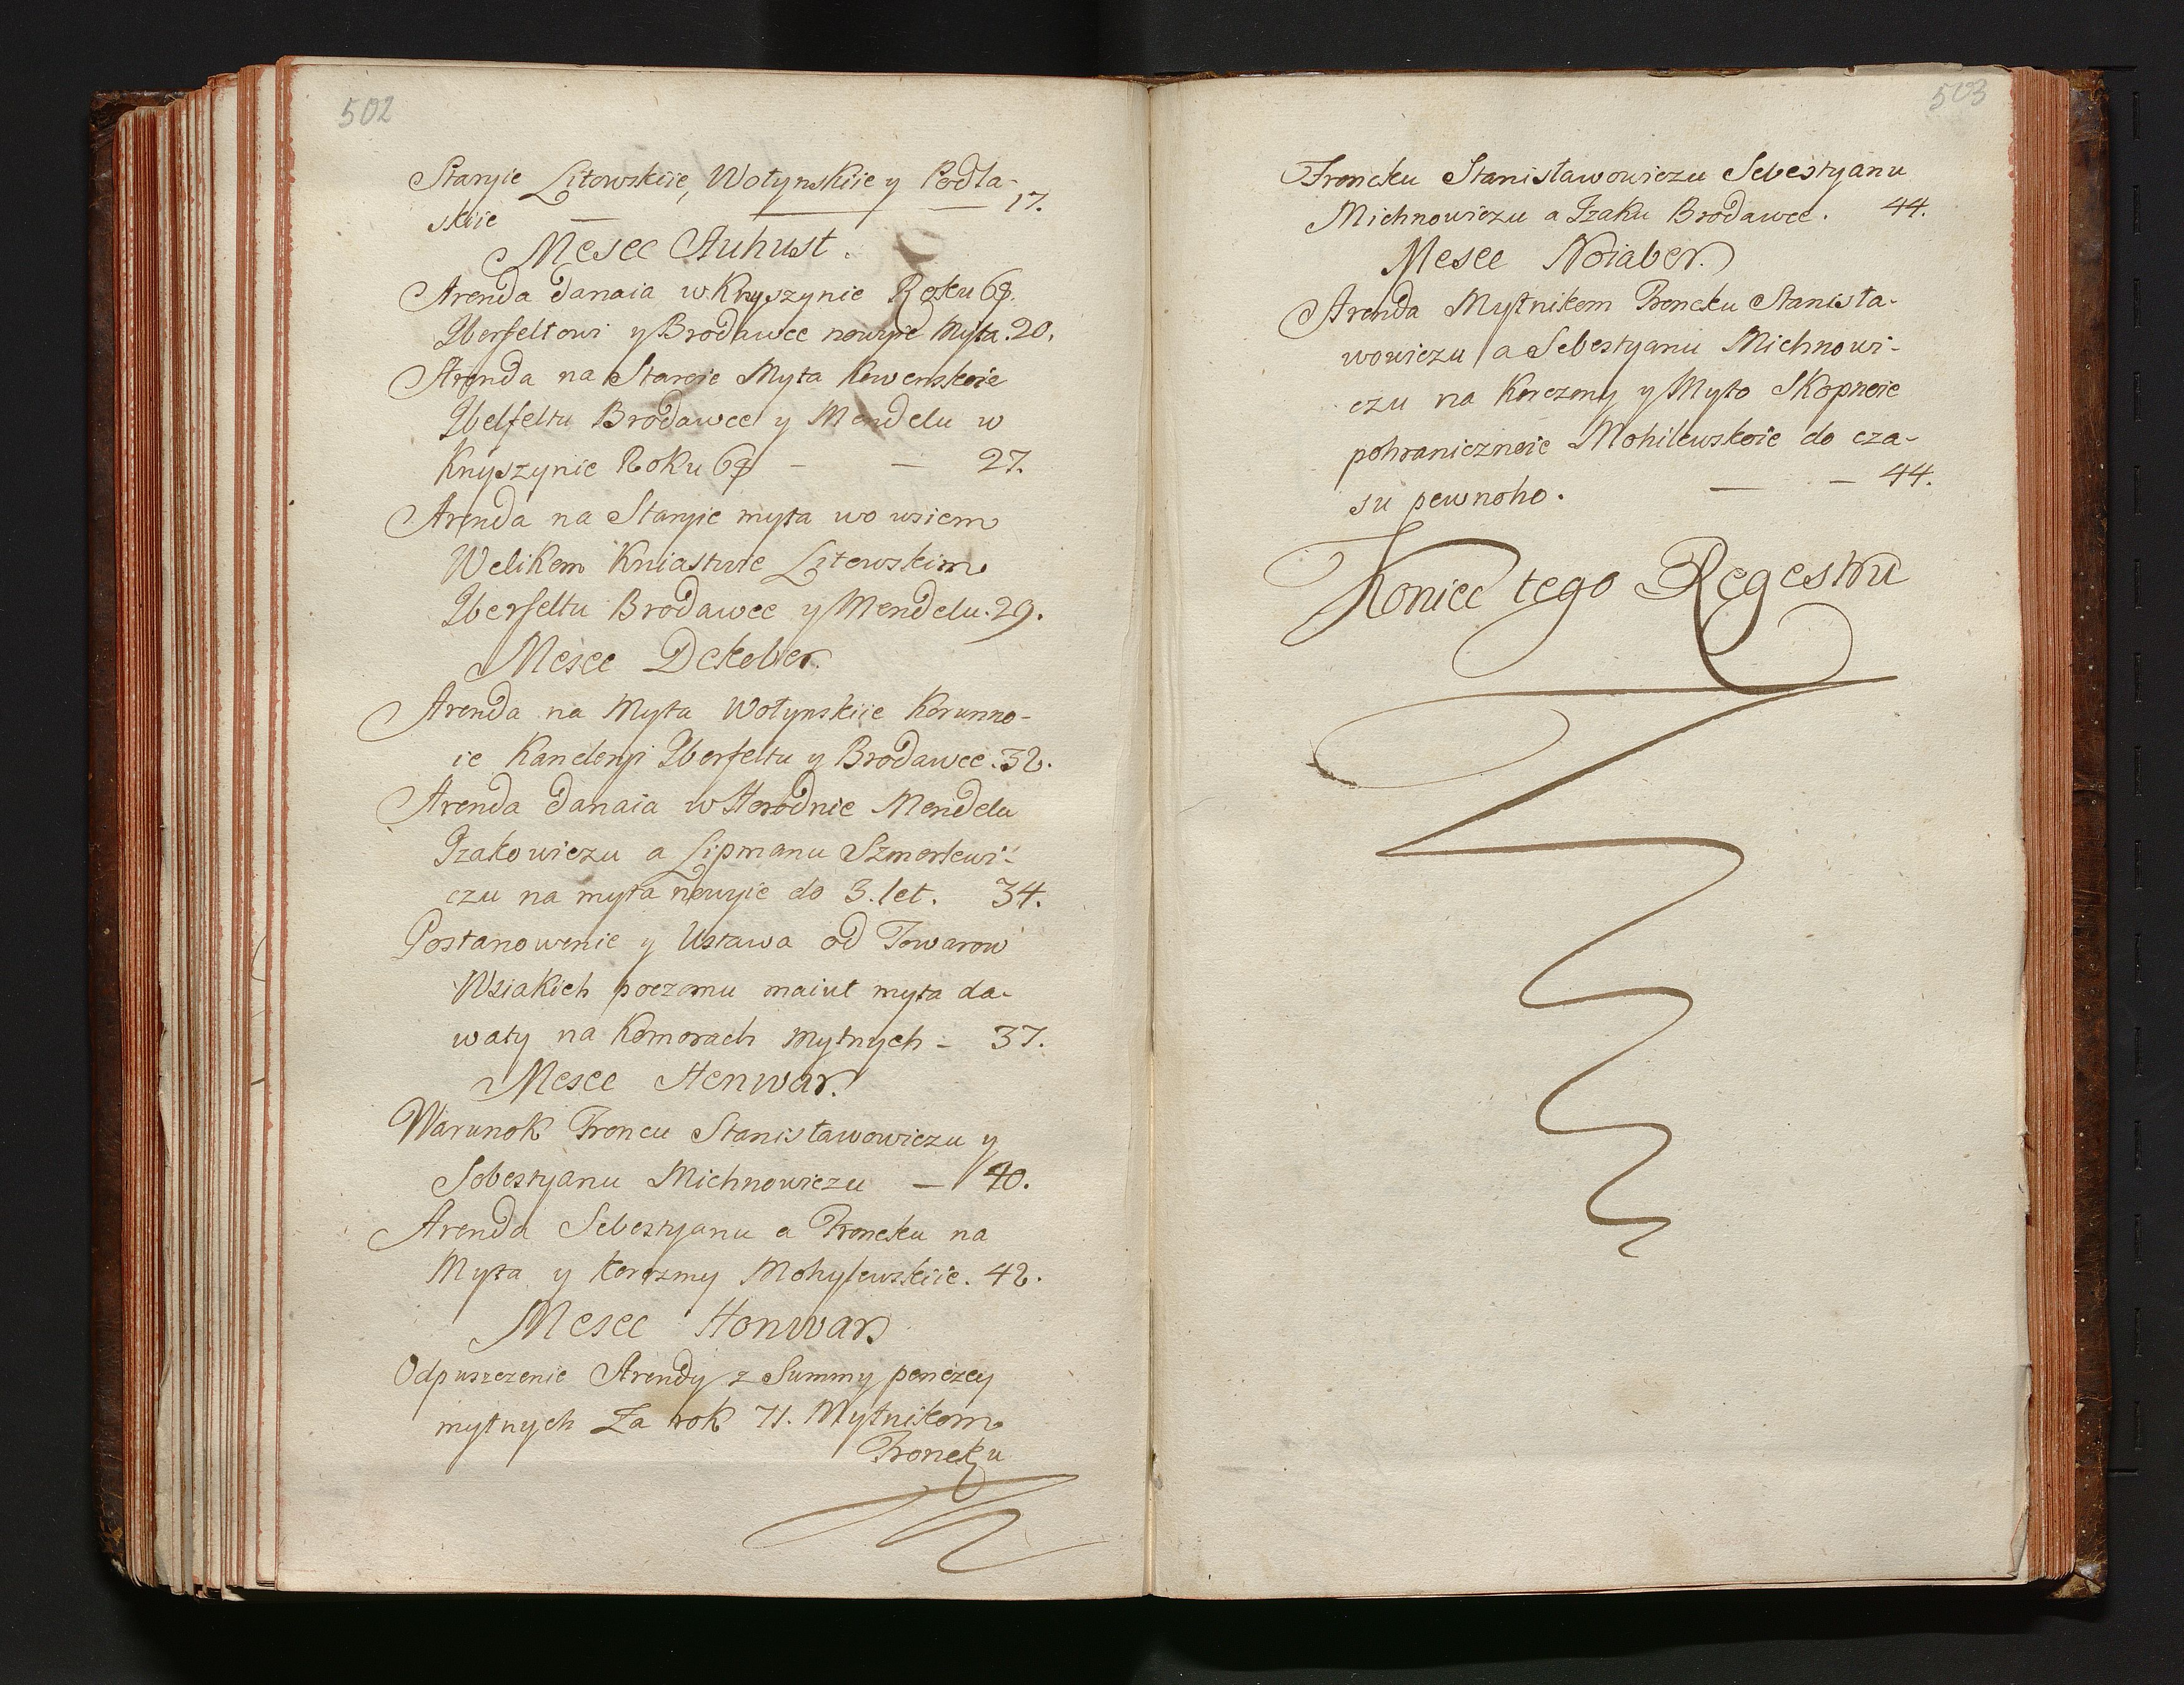 502
Staryie Litowskiie, Wołynskiie y Podla-
skiie — — — 17.
Mesec Auhust.
Arenda danaia w Knyszynie Roku 69.
Iberfeltowi y Brodawce nowyie Myta. 20.
Arenda na Staroie Myta Kowenskoie
Ibelfeltu Brodawce y Mendelu w
Knyszynie Roku 69 — — 27.
Arenda na Staryie myta wo wsiem
Welikom Kniastwie Litowskim
Iberfeltu Brodawce y Mendelu. 29.
Mesec Dekeber.
Arenda na Myta Wołynskiie Korunno-
ie Kancleryi Iberfeltu y Brodawce. 32.
Arenda danaia w Horodnie Mendelu
Izakowiczu a Lipmanu Szmerlewi-
czu na myta nowyie do 3. let. 34.
Postanowenie y Ustawa od Towarow
Wsiakich poczomu maiut myta da-
waty na Komorach Mytnych — 37.
Mesec Henwar.
Warunok Froncu Stanisławowiczu y
Sobestyanu Michnowiczu — 40.
Arenda Sebestyanu a Froncku na
Myta y Korczmy Mohylewskiie. 42.
Mesec Honwar
Odpuszczenie Arendy z Summy penezey
mytnych Za rok 71. Mytnikom
Froncku
503
Froncku Stanisławowiczu Sebestyanu
Michnowiczu a Izaku Brodawce. 44.
Mesec Noiaber.
Arenda Mytnikom Froncku Stanisła-
wowiczu a Sebestyanu Michnowi-
czu na Korczmy y Myto Skopnoie
pohranicznoie Mohilewskoie do cza-
su pewnoho. — — 44.
Koniec tego Regestru